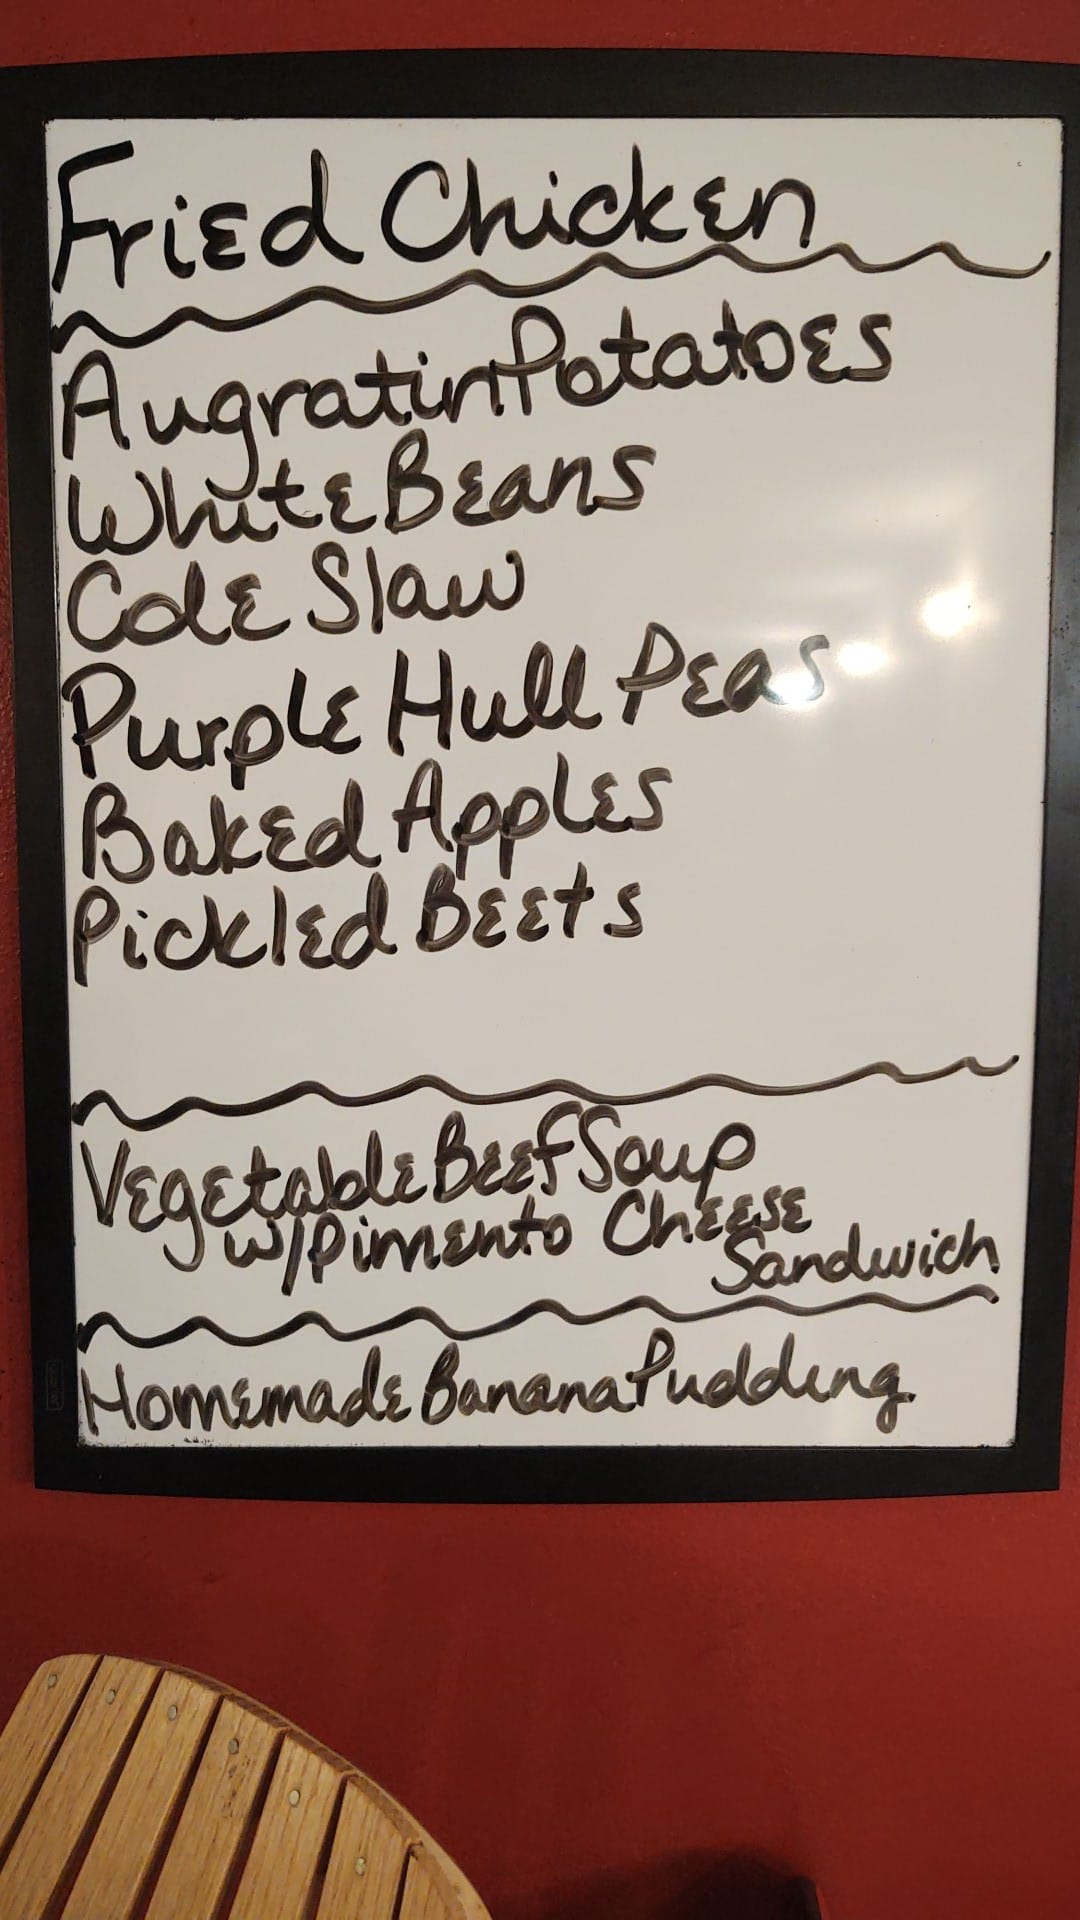 Fried Chicken
Augratin Potatoes
White Beans
Cole Slaw
Purple Hull Peas
Baked Apples
Pickled Beets
Vegetable Beef Soup
w/Pimento Cheese
Sandwich
Homemade Banana Pudding